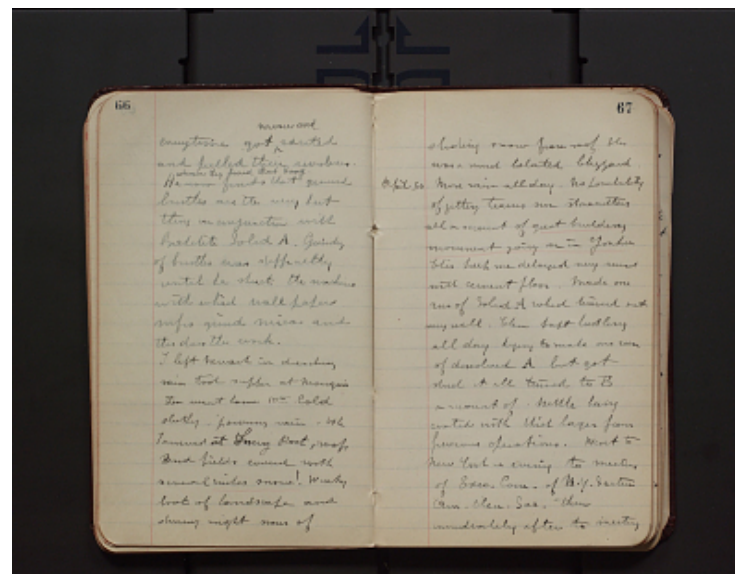 66
nervous and
got excited
and pulled their revolvers.
when they found that
He now finds that ground
bristles are the very best
thing in conjunction with
Bakelite Solid A. Grinding
of bristles was difficulty
until he struck the machine
with which wall paper
mfrs grind micas and
this does the work.
I left Newark in drenching
rain took supper at
Then went home Cold
pouring rain. Oh
at Dobbs Post, roofs
and fields covered with
several inches snow! Wintry
look of landscape and
during night noise of
67
sliding snow from roof this
was a most belated blizzard.
April 30. More rain all day. No possibility
of getting teams nor stonecutters
all on account of great building
movement going on in Yonkers
this keeps me delayed very much
with cement floor. Made one
run of Solid A which turned out
very well. Then kept
all day trying to make one run
of dissolved A but got
it all turned to B
account of kettle being
coated with thick layer from
previous operations. Went to
New York in evening to meeting
of Exec. Com. of N.Y. Section
Am. Chem. Soc. Then
immediately after to meeting